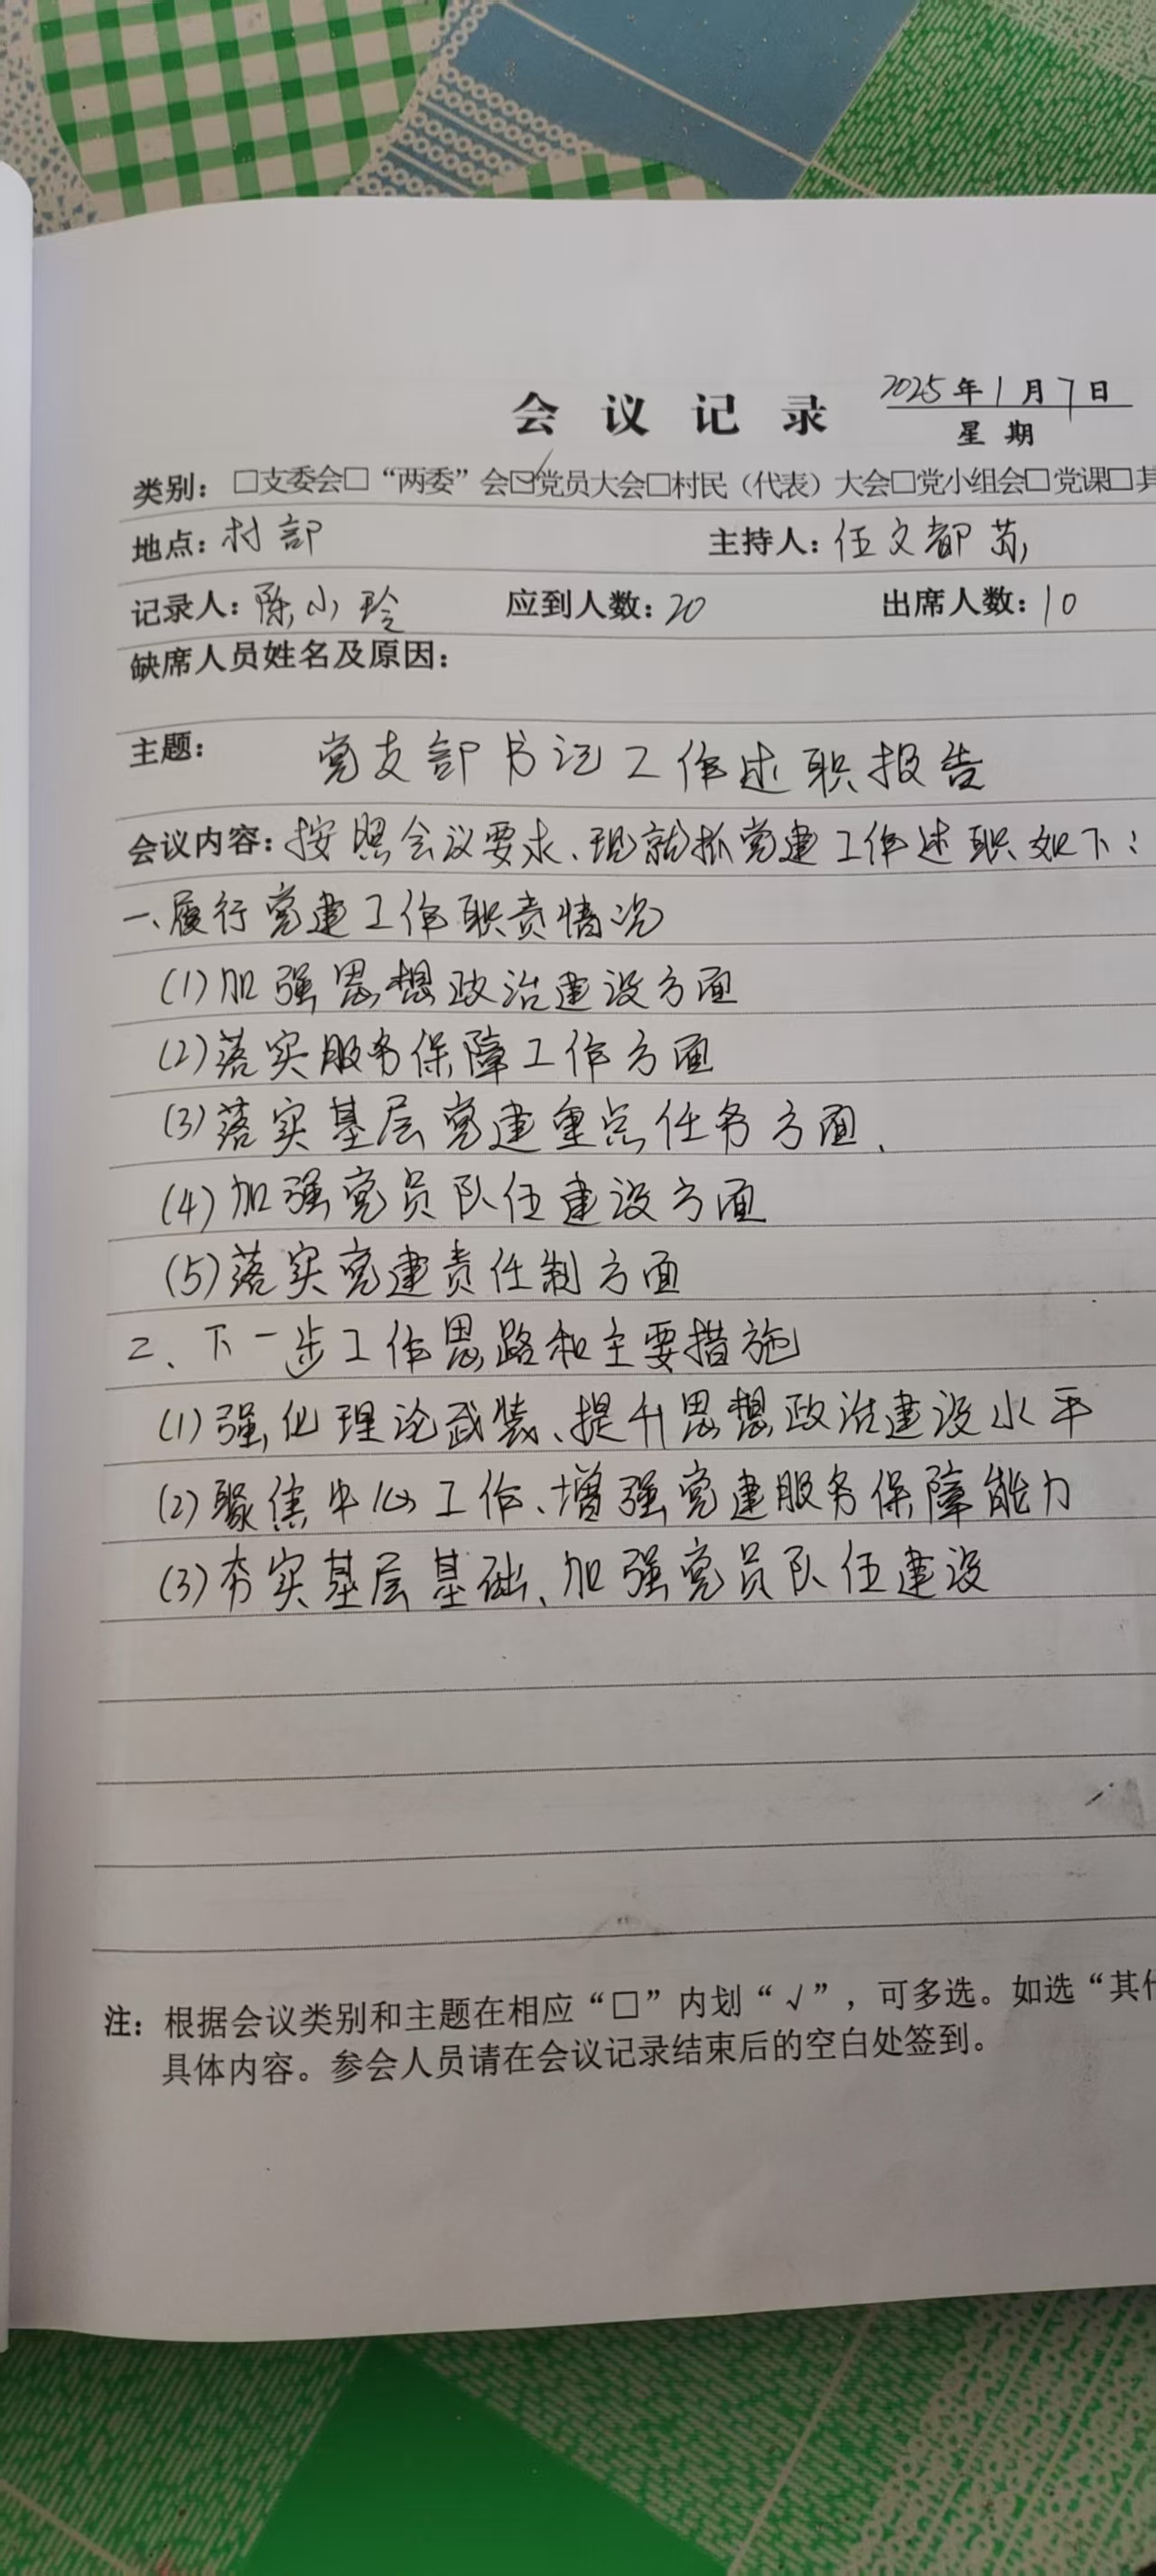 会议记录 2025年1月7日
星期
类别：□支委会□“两委”会☑党员大会□村民（代表）大会□党小组会□党课□其
地点：村部 主持人：任文都苏
记录人：陈小玲 应到人数：20 出席人数：10
缺席人员姓名及原因：
主题： 党支部书记工作述职报告
会议内容：按照会议要求、现就抓党建工作述职如下：
一、履行党建工作职责情况
(1)加强思想政治建设方面
(2)落实服务保障工作方面
(3)落实基层党建重点任务方面、
(4)加强党员队伍建设方面
(5)落实党建责任制方面
二、下一步工作思路和主要措施
(1)强化理论武装、提升思想政治建设水平
(2)聚焦中心工作、增强党建服务保障能力
(3)夯实基层基础、加强党员队伍建设
注：根据会议类别和主题在相应“□”内划“√”，可多选。如选“其他
具体内容。参会人员请在会议记录结束后的空白处签到。